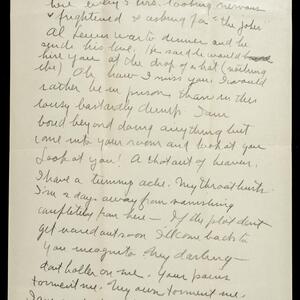 here every's here. looking nervous
& frightened & asking for the jokes
Al Lewen was to dinner and he
sends his love. He said he would
hire you at the drop of a hat (nothing
else) Oh, how I miss you. I would
rather be in prison than in this
lousy bastardly dump. I am
bored beyond doing anything but
come into your room and look at you
Look at you! A shot out of heaven.
I have a tummy ache. My throat hurts
I'm 2 days away from vanishing
completely from here — If the plot don't
get ironed out soon I'll come back to
you incognito My darling —
don't holler on me. Your pains
torment me. My own torment me.